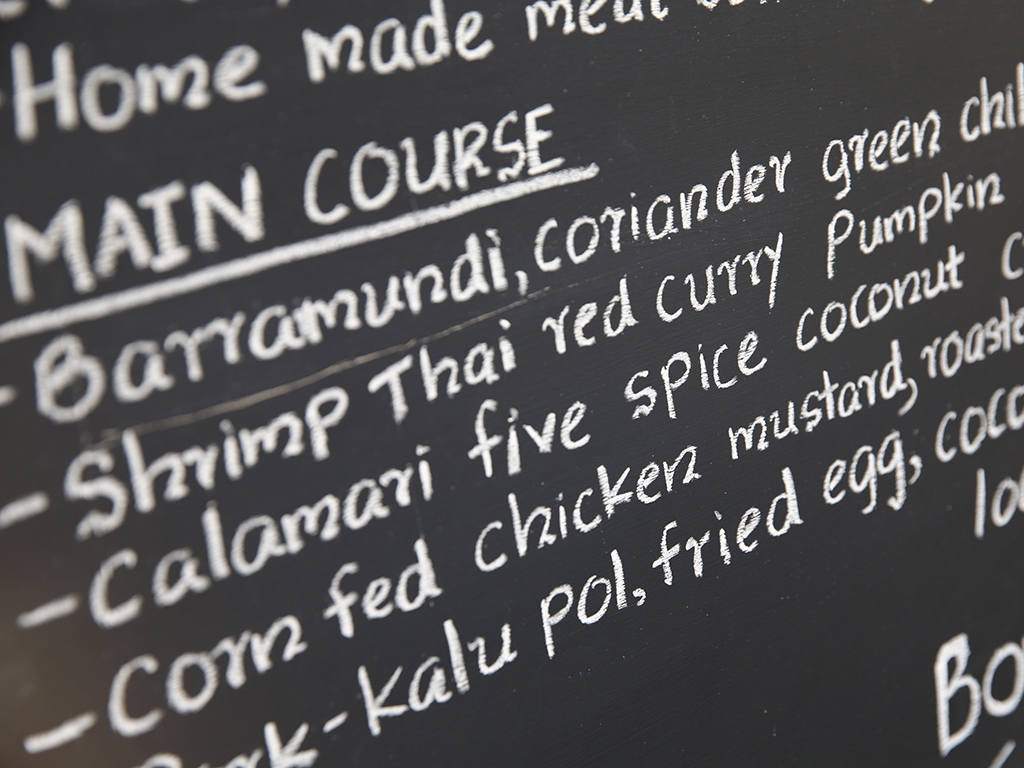 Home made meat
MAIN COURSE
- Barramundi, coriander green chil
- Shrimp Thai red curry Pumpkin
- Calamari five spice coconut c
- Corn fed chicken mustard, roaste
Pork-kalu pol, fried egg, coco
lo
Bo